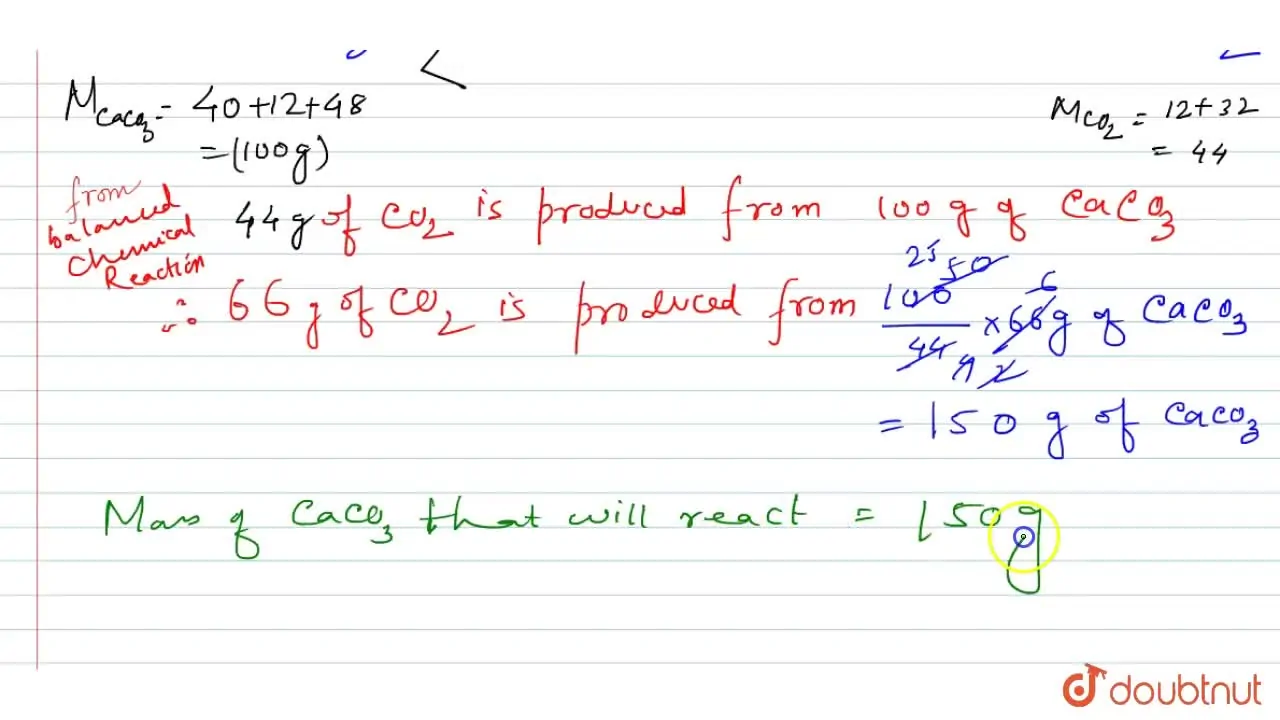 M_CaCO3 = 40+12+48
= (100g)
M_CO2 = 12+32
= 44
from
balanced
chemical
Reaction
44g of CO2 is produced from 100 g of CaCO3
∴ 66 g of CO2 is produced from 100/44 × 66g of CaCO3
25 50 6
4 2
= 150 g of CaCO3
Mass of CaCO3 that will react = 150g
doubtnut